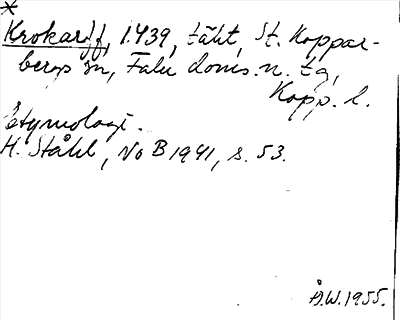 *
Krokarff, 1.439, täkt, St. Koppar-
bergs sn, Falu doms. n. tg,
Kopp. l.
Etymologi.
H. Ståhl, NoB 1941, s. 53.
Å.W. 1955.